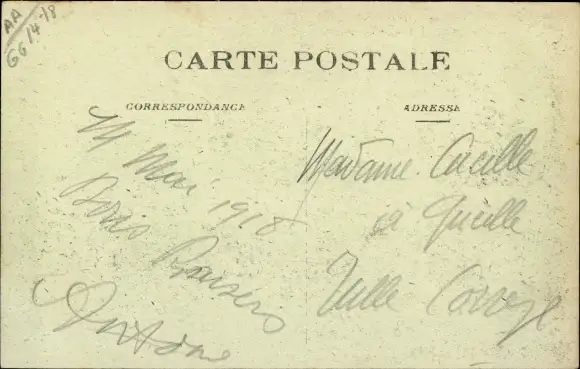 AA
GG14-18
CARTE POSTALE
CORRESPONDANCE
ADRESSE
14 Mai 1918
Bons Baisers
Antoine
Madame
à
Tulle Corrèze